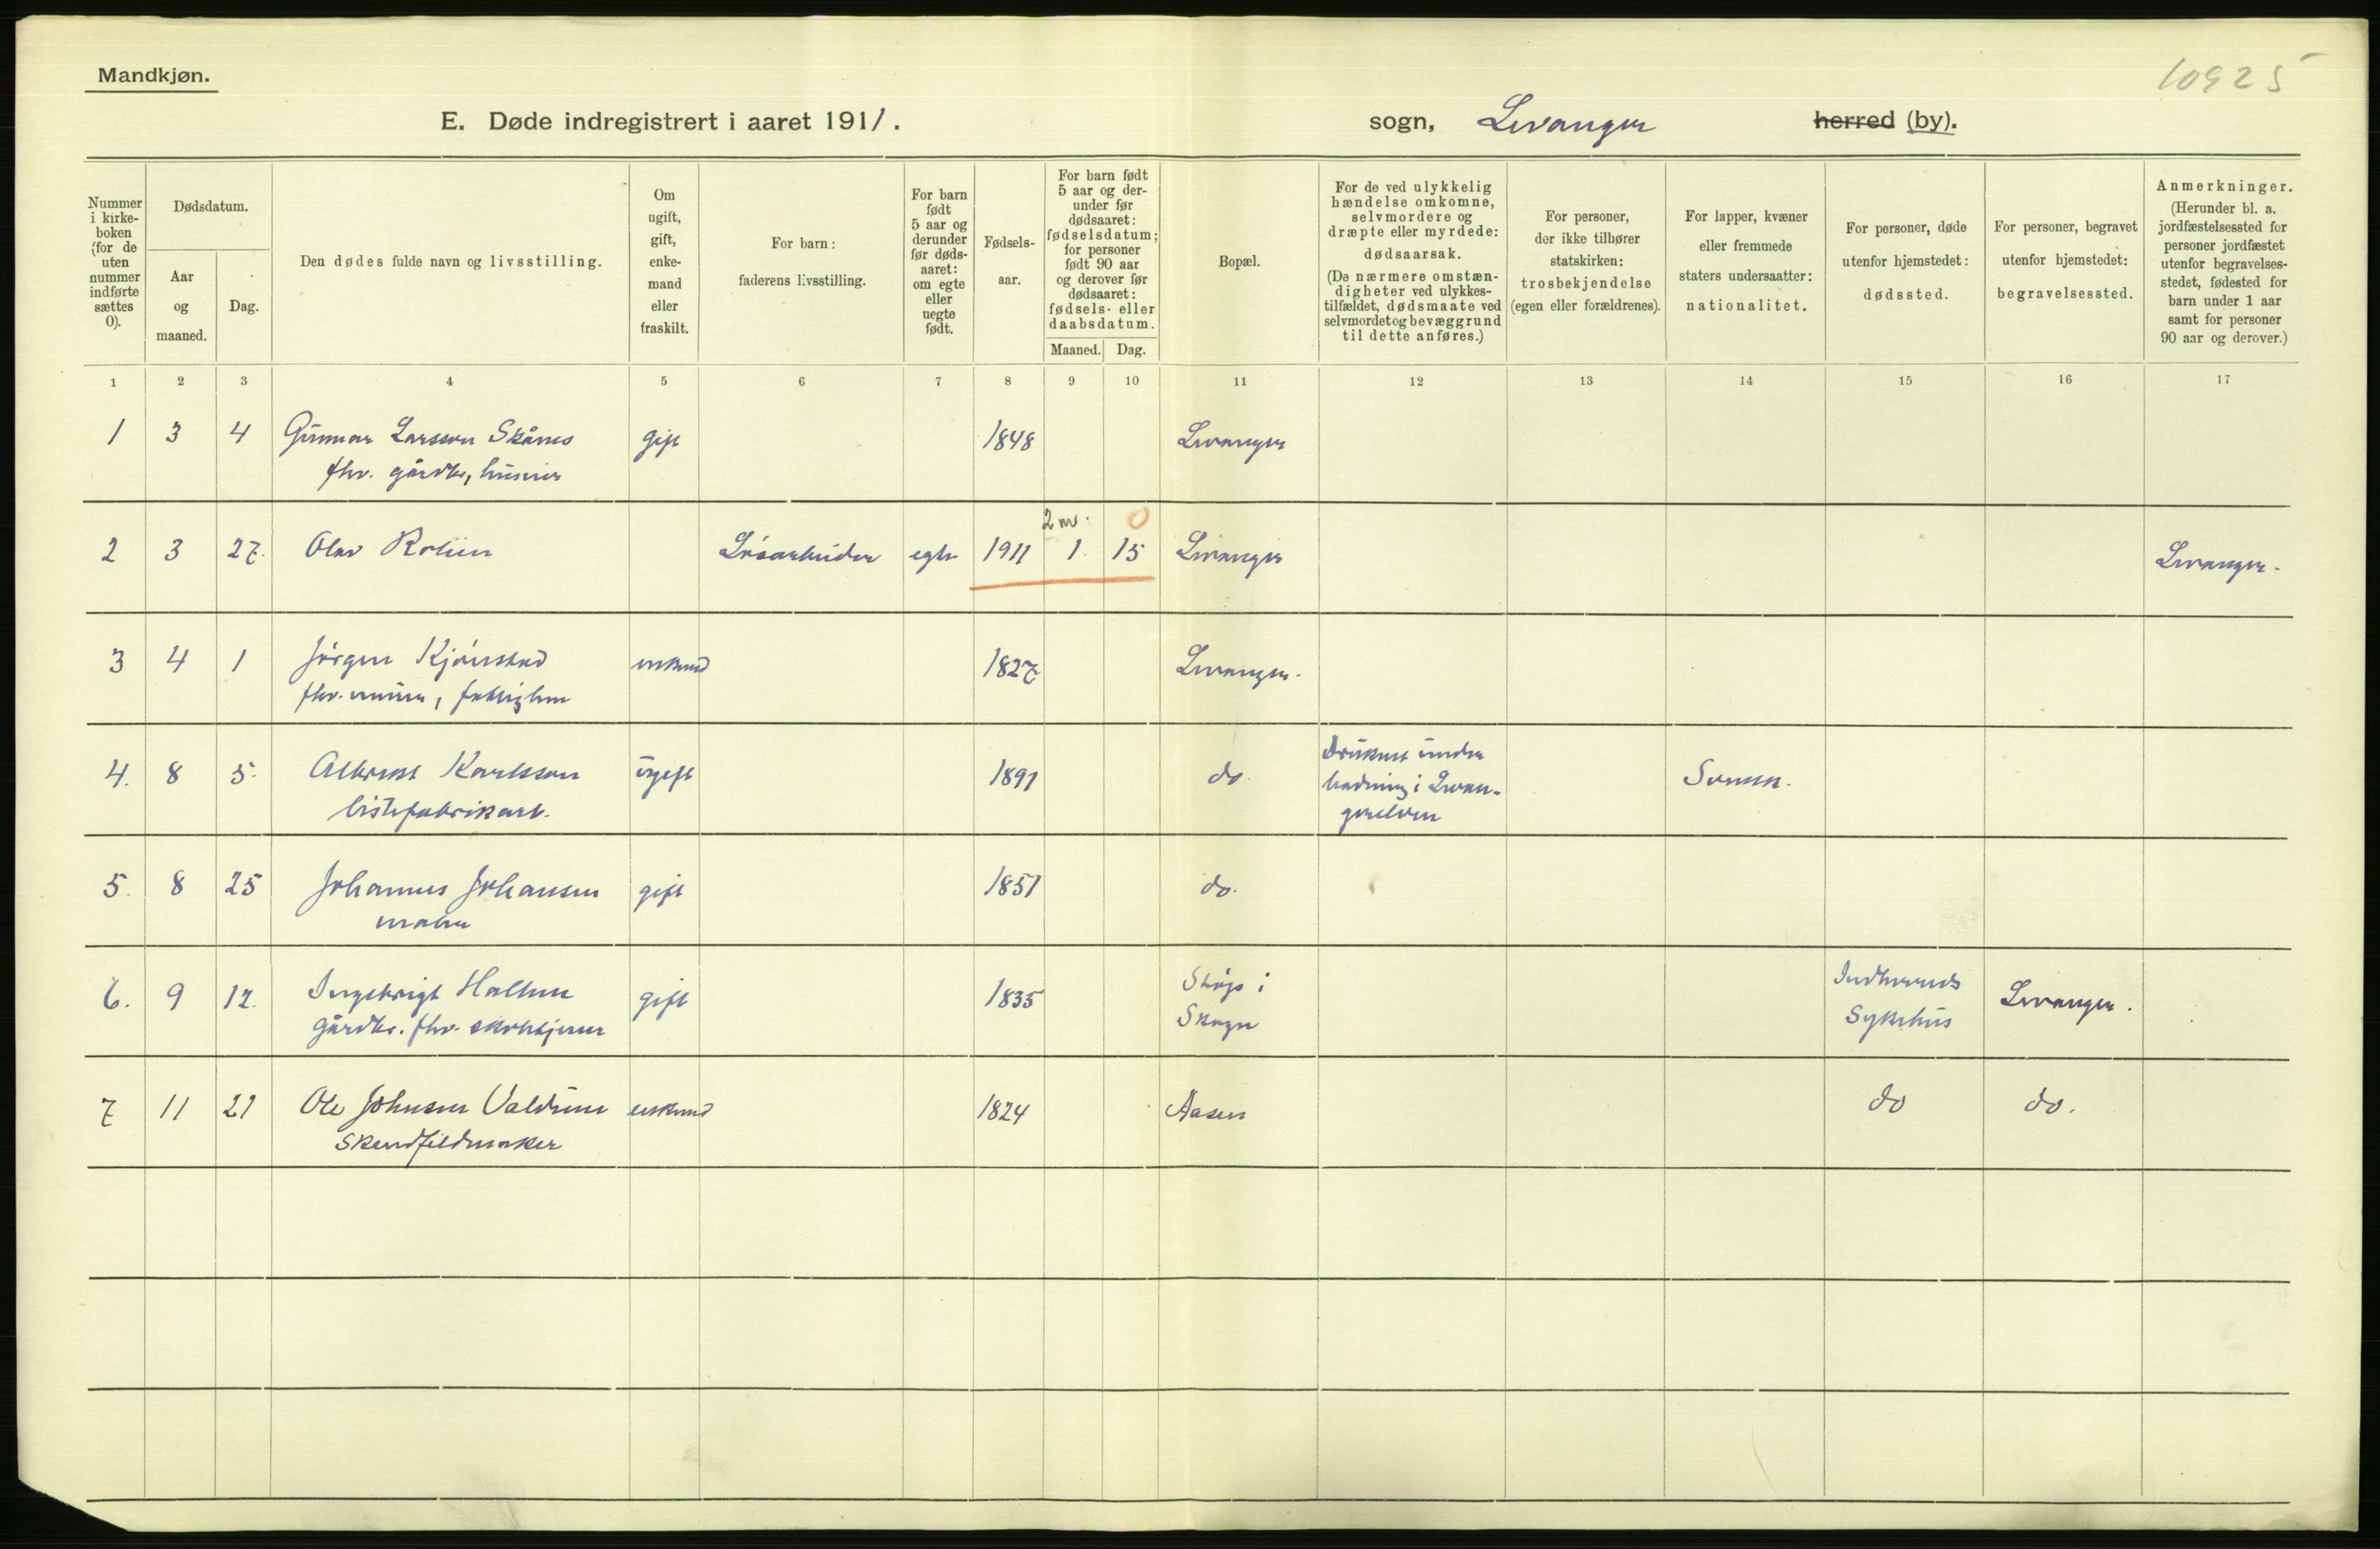 Mandkjøn.
10925
E. Døde indregistrert i aaret 1911. sogn, Levanger herred (by).
Nummer i kirkeboken (for de uten nummer indførte sættes 0).
Dødsdatum.
Aar og maaned.
Dag.
Den dødes fulde navn og livsstilling.
Om ugift, gift, enkemand eller fraskilt.
For barn: faderens livsstilling.
For barn født 5 aar og derunder før dødsaaret: om egte eller uegte født.
Fødselsaar.
For barn født 5 aar og derunder før dødsaaret: fødselsdatum; for personer født 90 aar og derover før dødsaaret: fødsels- eller daabsdatum.
Maaned. Dag.
Bopæl.
For de ved ulykkelig hændelse omkomne, selvmordere og dræpte eller myrdede: dødsaarsak. (De nærmere omstændigheter ved ulykkestilfældet, dødsmaate ved selvmordet og bevæggrund til dette anføres.)
For personer, der ikke tilhører statskirken: trosbekjendelse (egen eller forældrenes).
For lapper, kvæner eller fremmede staters undersaatter: nationalitet.
For personer, døde utenfor hjemstedet: dødssted.
For personer, begravet utenfor hjemstedet: begravelsessted.
Anmerkninger. (Herunder bl. a. jordfæstelsessted for personer jordfæstet utenfor begravelsesstedet, fødested for barn under 1 aar samt for personer 90 aar og derover.)
1 2 3 4 5 6 7 8 9 10 11 12 13 14 15 16 17
1 3 4 Gunnar Larssen Skånes gift 1848 Levanger
fhv. gårdbr,
2 m. 0
2 3 27. Olav Rolien Løsarbeider egte 1911 1. 15 Levanger Levanger.
3 4 1 Jørgen Kjønstad enkemd 1827 Levanger.
fhv. murer, fattiglem
4. 8 5. Albrekt Karlsson ugift 1891 do. Druknet under Svensk.
listefabrikarb. badning i Levan-
gerelven
5. 8 25 Johannes Johansen gift 1851 do.
maler
6. 9 12. Ingebrigt Halsen gift 1835 i Indherreds Levanger.
gårdbr. fhv. Skogn Sykehus
7 11 21 Ole Johnsen enkemd 1824 Aasen do do.
Skandfeldmaker